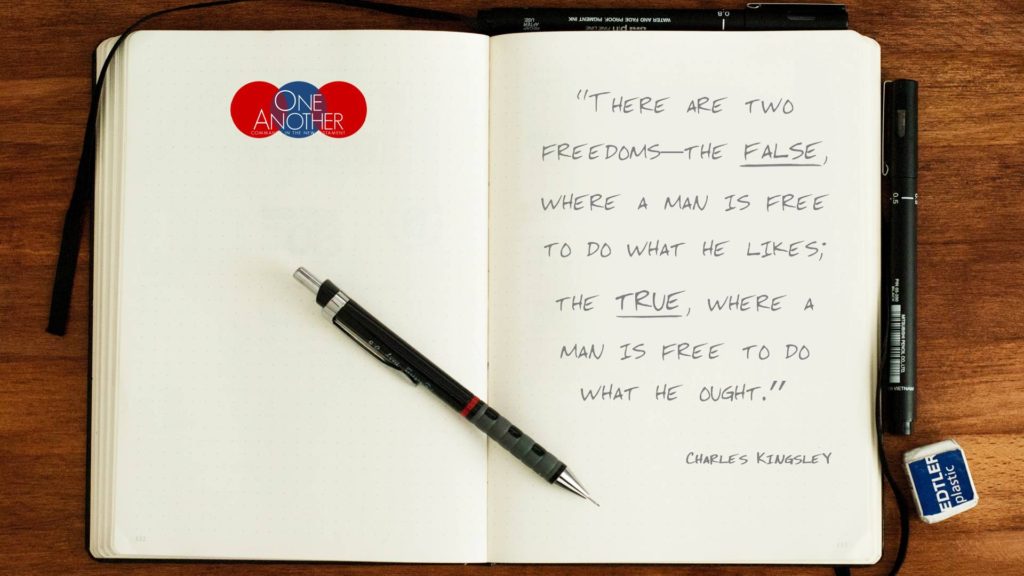 ONE
ANOTHER
COMMANDS IN THE NEW TESTAMENT
"THERE ARE TWO
FREEDOMS—THE FALSE,
WHERE A MAN IS FREE
TO DO WHAT HE LIKES;
THE TRUE, WHERE A
MAN IS FREE TO DO
WHAT HE OUGHT."
CHARLES KINGSLEY
WATER AND FADE PROOF, PIGMENT INK
0.8
0.5
EDTLER
plastic